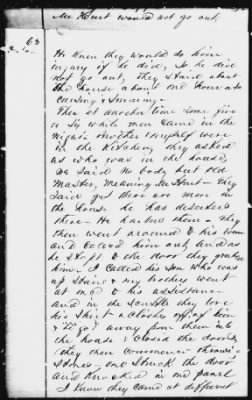 Mr Hurt would not go out
63
He knew they would do him
injury if he did, so he did
not go out, they staid about
the house about one hour
cursing & swearing.
Then at another time some five
or six which men came in the
night. Mother & myself were
in the Kitchen, they asked
us who was in the house,
we said no body but old
Master, meaning Mr Hurt - they
said yes there are more in
the house he has deserters
there - He harbors them - they
then went around to his room
and called him out, and as
he stept to the door they grabed
him - I called his son who was
up stairs & my brother went
out and to his assistance
and in the scuffle they tore
his shirt & clothes off of him
& got away from them into
the house & closed the doors
they then commenced throwing
stones - one struck the door
and knocked in one panel
I know they came at different